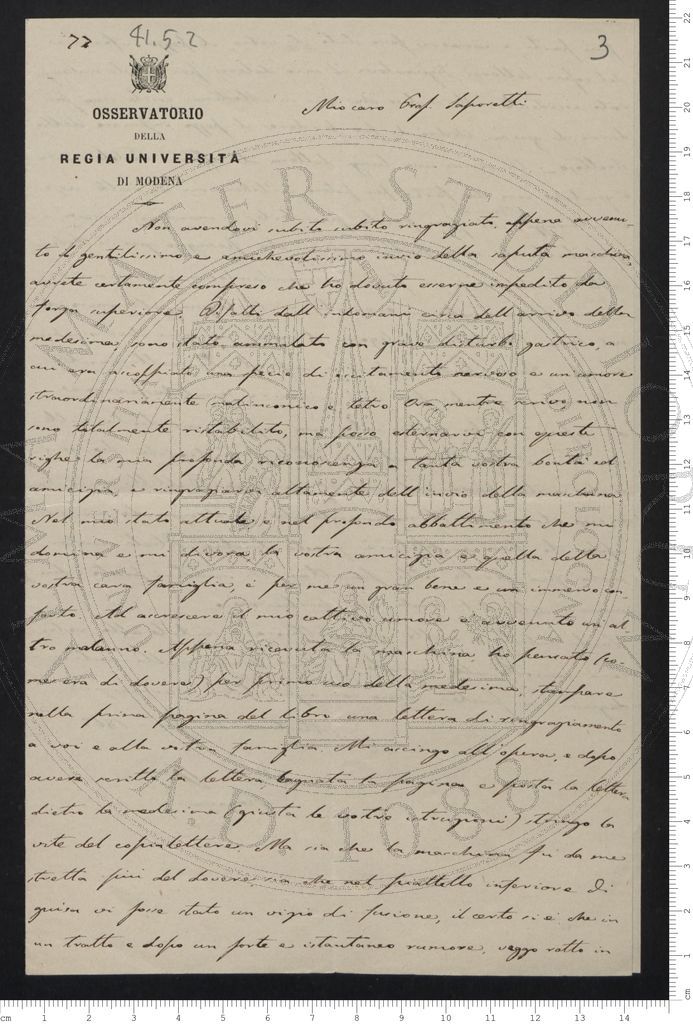 77 41.5.2 3
OSSERVATORIO
DELLA
REGIA UNIVERSITÀ
DI MODENA
Mio caro Prof. Saporetti
Non avendovi subito subito ringraziato, appena avvenu-
to il gentilissimo e amichevolissimo invio della saputa macchina,
avrete certamente compreso che ho dovuto esserne impedito da
forza superiore. Difatti dall'indomani circa dell'arrivo della
medesima, sono stato ammalato con gravi disturbi gastrici, a
cui era accoppiato una specie di eccitamento nervoso e un umore
straordinariamente malinconico e tetro. Ora mentre scrivo, non
sono totalmente ristabilito, ma posso esternarvi con queste
righe la mia profonda riconoscenza a tanta vostra bontà ed
amicizia, e ringraziarvi altamente dell'invio della macchina.
Nel mio stato attuale, e nel profondo abbattimento che mi
domina e mi divora, la vostra amicizia e quella della
vostra cara famiglia, è per me un gran bene e un immenso con-
forto. Ad accrescere il mio cattivo umore è avvenuto un al-
tro malanno. Appena ricevuta la macchina ho pensato (co-
me era di dovere) per primo uso della medesima, stampare
nella prima pagina del libro una lettera di ringraziamento
a voi e alla vostra famiglia. Mi accingo all'opera, e dopo
avere scritto la lettera, bagnata la pagina e posta la lettera
dietro la medesima (giusta le vostre istruzioni) stringo la
vite del copialettere. Ma sia che la macchina fu da me
stretta più del dovere, sia che nel piattello inferiore di
guisa vi fosse stato un vizio di fusione, il certo si è che in
un tratto e dopo un forte e istantaneo rumore, veggo rotto in